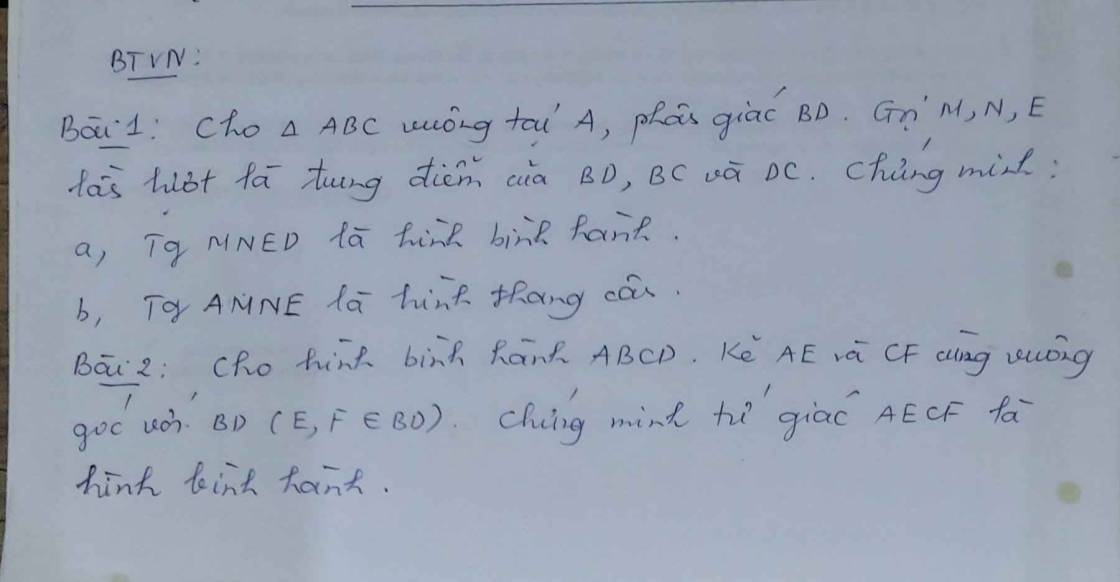 BTVN:
Bài 1: Cho Δ ABC vuông tại A, phân giác BD. Gọi M, N, E
lần lượt là trung điểm của BD, BC và DC. Chứng minh:
a, Tg MNED là hình bình hành.
b, Tg AMNE là hình thang cân.
Bài 2: Cho hình bình hành ABCD. Kẻ AE và CF cùng vuông
góc với BD (E, F ∈ BD). Chứng minh tứ giác AECF là
hình bình hành.